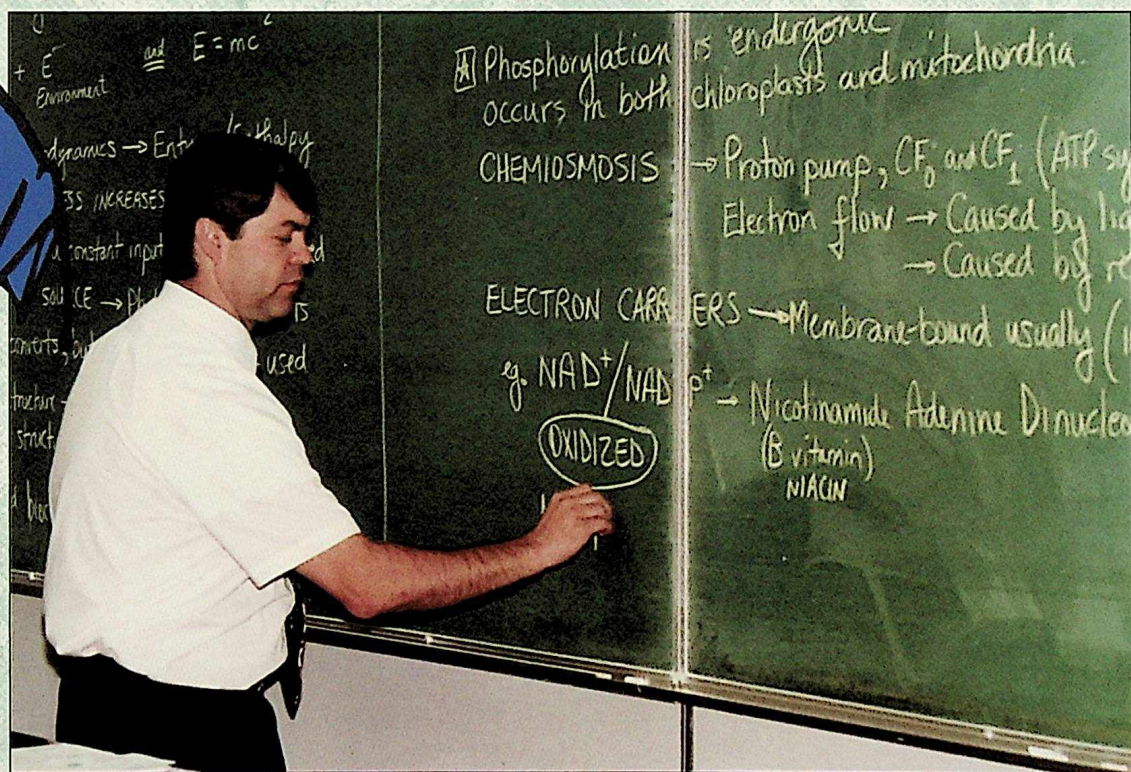 + E
Environment
and E = mc²
dynamics → Enthalpy
SS INCREASES
constant input
SOURCE →
converts, used
tructure
struct
[A] Phosphorylation is endergonic
occurs in both chloroplasts and mitochondria.
CHEMIOSMOSIS → Proton pump, CF₀ and CF₁ (ATP sy
Electron flow → Caused by lig
→ Caused by re
ELECTRON CARRIERS → Membrane-bound usually (
eg. NAD⁺/NADP⁺ → Nicotinamide Adenine Dinucleo
OXIDIZED
(B vitamin)
NIACIN